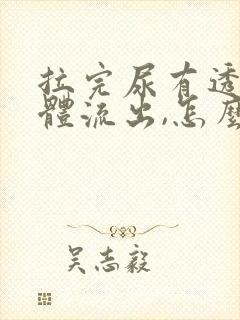 拉完尿有透
體流出,怎麼
吴志毅